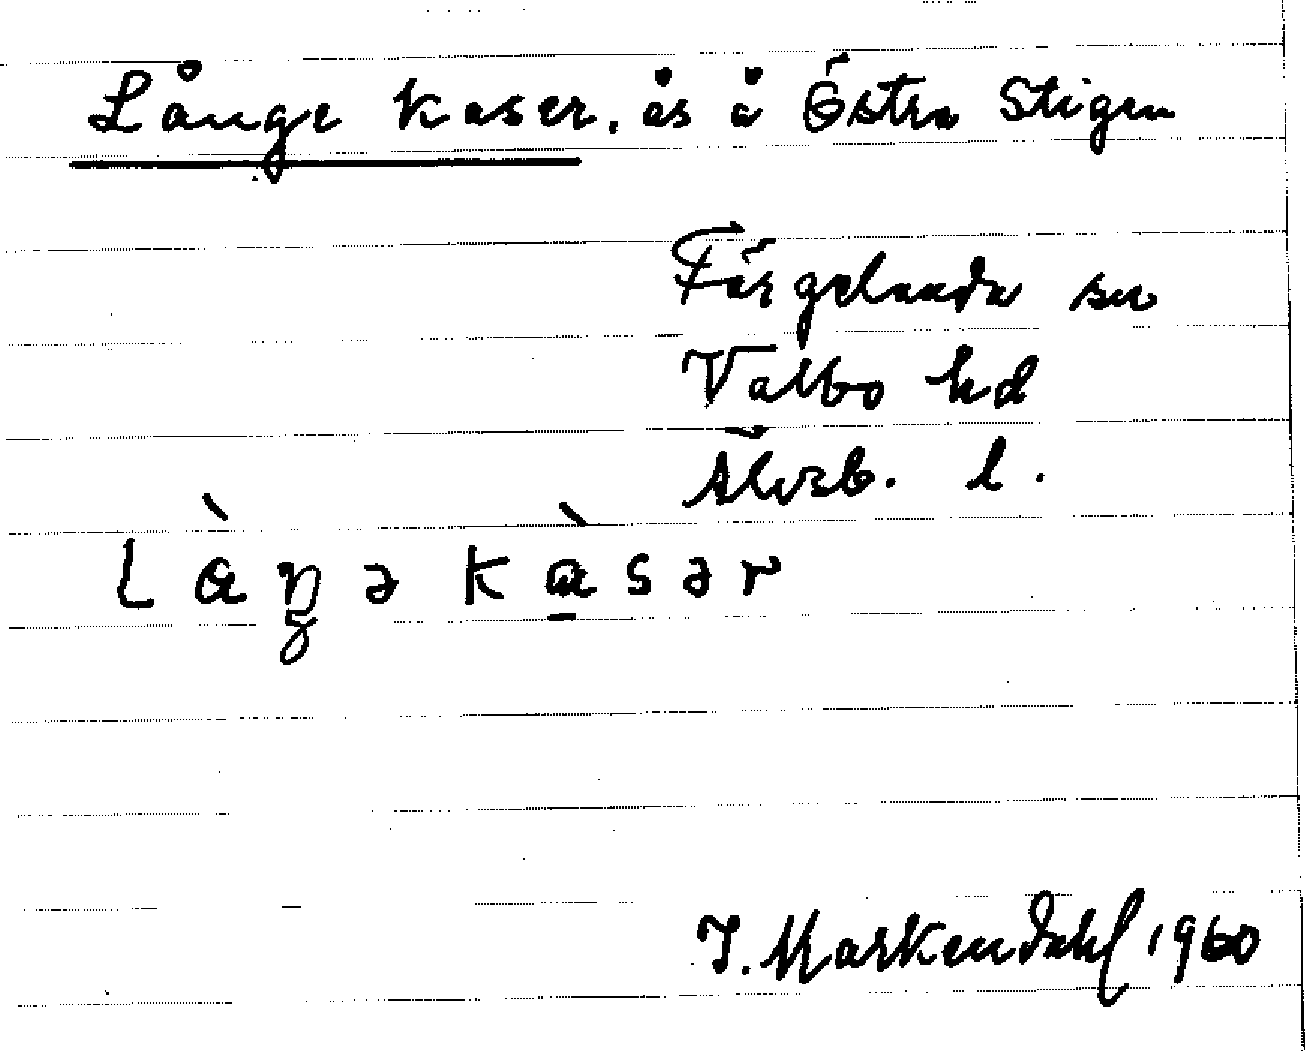 Långe kaser, ås å Östra Stigen
Färgelanda sn
Valbo hd
Älvsb. l.
làŋəkàsər
J. Markendahl 1960